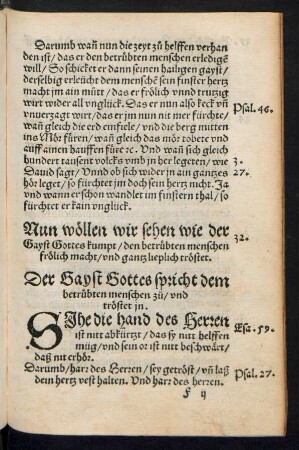 Darumb wañ nun die zeyt zů helffen verhan
den ist/ das er den betrübten menschen erledigẽ
will/ So schicket er dann seinen hailigen gayst/
derselbig erleücht dem menschẽ sein finster hertz
macht jm ain můtt/ das er frölich vnnd trutzig
wirt wider all vnglück. Das er nun also keck vñ
vnuerzagt wirt/ das er jm nun nit mer fürchte/
wañ gleich die erd einfiele/ vnd die berg mitten
ins Mör füren/ wañ gleich das mör tobete vnd
auff ainen hauffen füre ꝛc. Vnd wañ sich gleich
hundert tausent volcks vmb jn her legeten/ wie
Dauid sagt/ Vnnd ob sich wider jn ain gantzes
hör leget/ so fürchtet jm doch sein hertz nicht. Ja
vnd wann er schon wandlet im finstern thal/ so
fürchtet er kain vnglück.
Psal. 46.
3.
27.
Nun wöllen wir sehen wie der
Gayst Gottes kumpt/ den betrübten menschen
frölich macht/ vnd gantz lieplich tröstet.
32.
Der Gayst Gottes spricht dem
betrübten menschen zů/ vnd
tröstet jn.
SIhe die hand des Herren
ist nitt abkürtzt/ das sy nitt helffen
müg/ vnd sein or ist nitt beschwärt/
daß nit erhör.
Esa. 59.
Darumb/ harꝛ des Herren/ sey getröst/ vñ laß
dein hertz vest halten. Vnd harꝛ des herren.
Psal. 27.
F ij